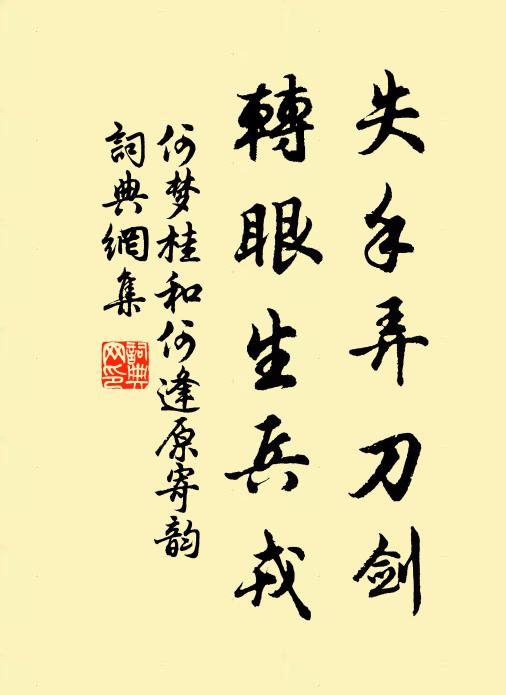 失手弄刀劍
轉眼生兵戎
何梦桂和何逢原寄韵
詞典網集
詞典網印